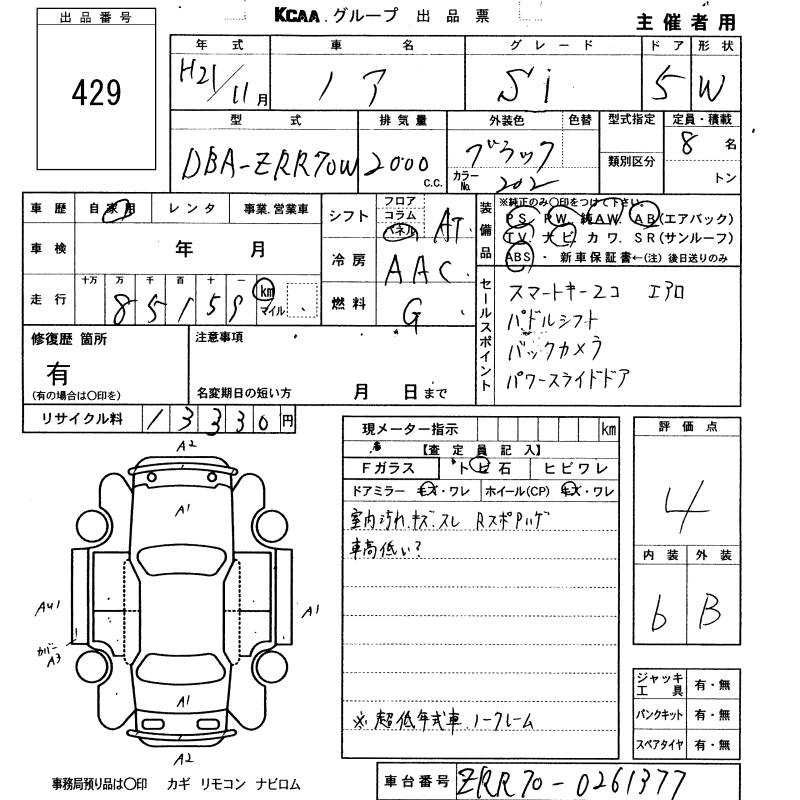 KCAA.グループ 出品票
主催者用
出品番号
429
年式 車名 グレード ドア 形状
H21/11月 ノア Si 5 W
型式 排気量 外装色 色替 型式指定 定員・積載
DBA-ZRR70W 2000 c.c. ブラック カラーNo. 202 類別区分 8名 トン
車歴 自家用 レンタ 事業.営業車
車検 年 月
走行 十万 万 千 百 十 一
85159 km マイル
シフト フロア コラム パネル AT
冷房 AAC
燃料 G
装備品 ※純正のみ○印をつけて下さい。
PS. PW. 純AW. AB(エアバック)
TV. ナビ. カワ. SR(サンルーフ)
ABS ・ 新車保証書←(注) 後日送りのみ
セールスポイント
スマートキー2コ エアロ
パドルシフト
バックカメラ
パワースライドドア
修復歴 箇所
有
(有の場合は○印を)
注意事項
名変期日の短い方 月 日まで
リサイクル料 13330円
現メーター指示 km
【査定員記入】
Fガラス トビ石 ヒビワレ
ドアミラー キズ・ワレ ホイール(CP) キズ・ワレ
室内汚れ.キズ.スレ RスポPハゲ
車高低い?
※超低年式車.ノークレーム
評価点
4
内装 外装
6 B
ジャッキ工具 有・無
パンクキット 有・無
スペアタイヤ 有・無
A2
A1
A1
カバーA3
A1
A1
A2
事務局預り品は○印 カギ リモコン ナビロム
車台番号 ZRR70-0261377